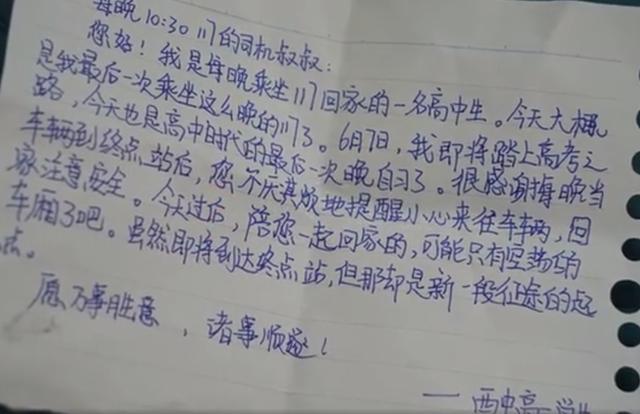 每晚10:30 117的司机叔叔:
您好！我是每晚乘坐117回家的一名高中生。今天大概
是我最后一次乘坐这么晚的117了。6月7日，我即将踏上高考之
路，今天也是高中时代的最后一次晚自习了。很感谢每晚当
车辆到终点站后，您不厌其烦地提醒小心来往车辆，回
家注意安全。今天过后，陪您一起回家的，可能只有空荡的
车厢了吧。虽然即将到达终点站，但那却是新一段征途的起
点。
愿万事胜意，诸事顺遂！
——西中高一学生